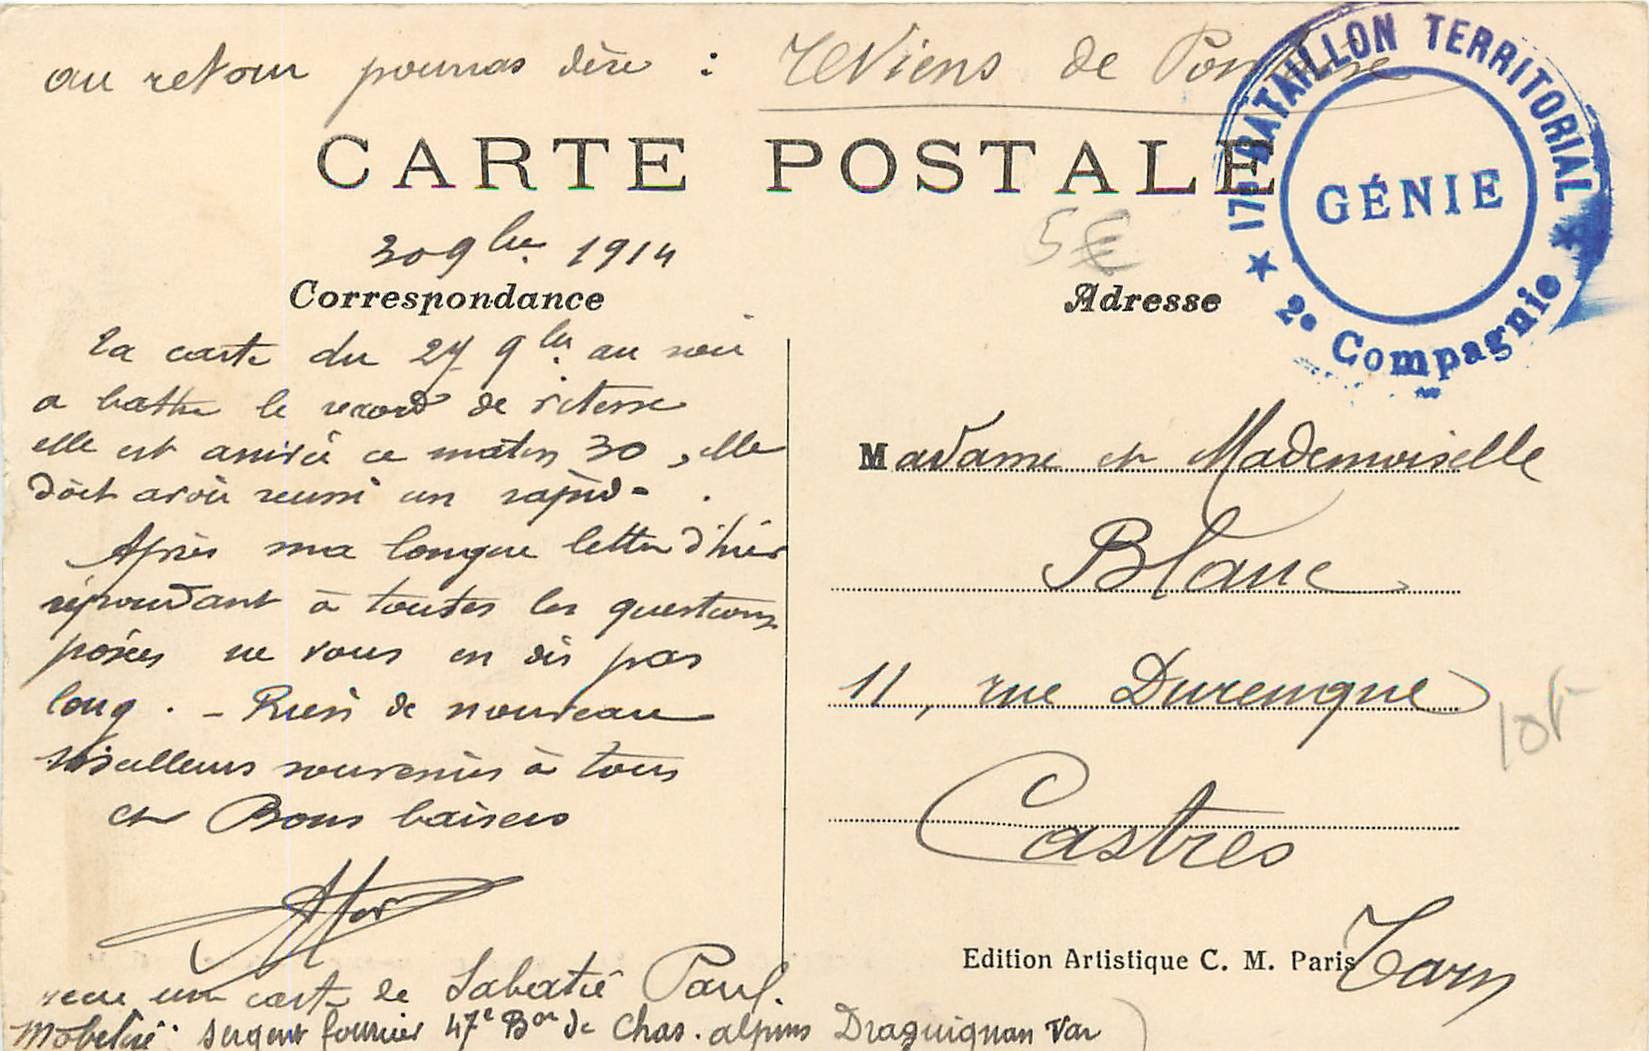 au retour pourras dire : Reviens de Pontoise
CARTE POSTALE
17e BATAILLON TERRITORIAL
GÉNIE
★ 2e Compagnie ★
30 9bre 1914
5€
Correspondance
Adresse
La carte du 27 9bre au soir
a battu le record de vitesse
elle est arrivée ce matin 30, elle
doit avoir reussi un rapide.
Après ma longue lettre d'hier
répondant à toutes les questions
posées ne vous en dis pas
long. - Rien de nouveau
Meilleurs souvenirs à tous
et Bons baisers
Madame et Mademoiselle
Blanc
11, rue Durengue
Castres
Tarn
10F-
Edition Artistique C. M. Paris
recu une carte de Sabatié Paul.
Mobilisé sergent fourrier 47e Bon de Chas. alpins Draguignan Var